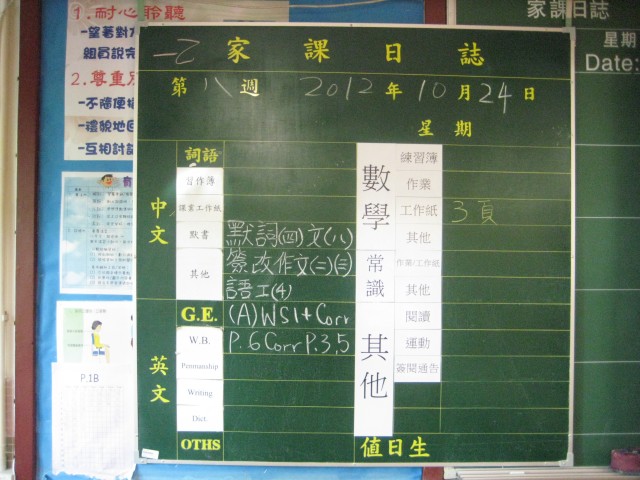 1.耐心聆聽
-望著對方
組員說完
2.尊重別
-不隨便插
-禮貌地回
-互相討論
P.1B
一乙 家課日誌
第 八 週 2012 年 10 月 24 日
星期
中文
詞語
習作簿
課堂工作紙
默書 默詞(四)文(八)
其他 簽改作文(二)(三)
語工(4)
英文
G.E. (A)WS1+Corr
W.B. P.6 Corr P.3,5
Penmanship
Writing
Dict.
OTHS
數學
練習簿
作業
工作紙 3頁
其他
常識
作業/工作紙
其他
其他
閱讀
運動
簽閱通告
值日生
家課日誌
星期
Date: